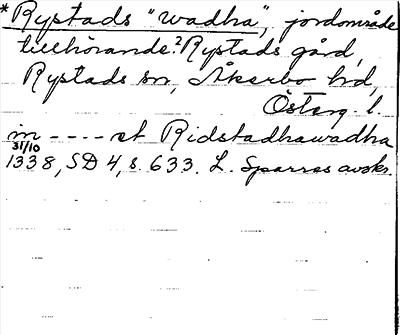 * Rystads "wadha", jordområde
tillhörande? Rystads gård,
Rystads sn, Åkerbo hd,
Österg. l.
in - - - - et Ridstadhawadha
31/10
1338, SD 4, s. 633. L. Sparres avskr.